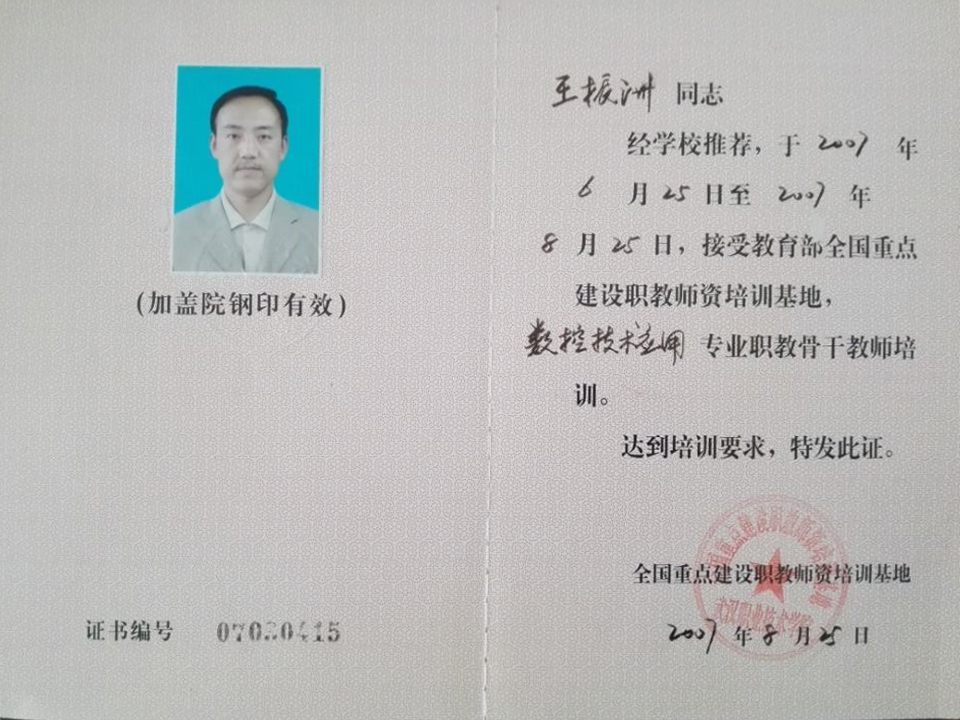 (加盖院钢印有效)
证书编号 07030415
王振洲 同志
经学校推荐，于 2007 年
6 月 25 日至 2007 年
8 月 25 日，接受教育部全国重点
建设职教师资培训基地，
数控技术应用 专业职教骨干教师培
训。
达到培训要求，特发此证。
全国重点建设职教师资培训基地
2007 年 8 月 25 日
全国重点建设职教师资培训基地
武汉职业技术学院